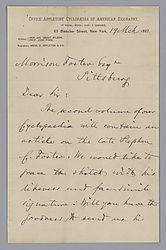 OFFICE APPLETONS' CYCLOPÆDIA OF AMERICAN BIOGRAPHY,
New York, 19 Mch 1887.
Morrison Foster Esq
Pittsburg
Dear Sir:
The second volume of our
Cyclopædia will contain an
article on the late Stephen
C. Foster. We would like to
grace the sketch with his
likeness and fac-simile
signature. Will you have the
goodness to send us his